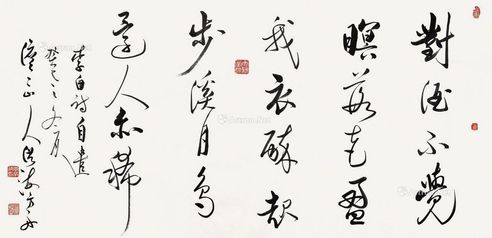 對酒不覺
暝落花盈
我衣醉起
步溪月鳥
還人亦稀
李白詩自遣
癸巳之冬月